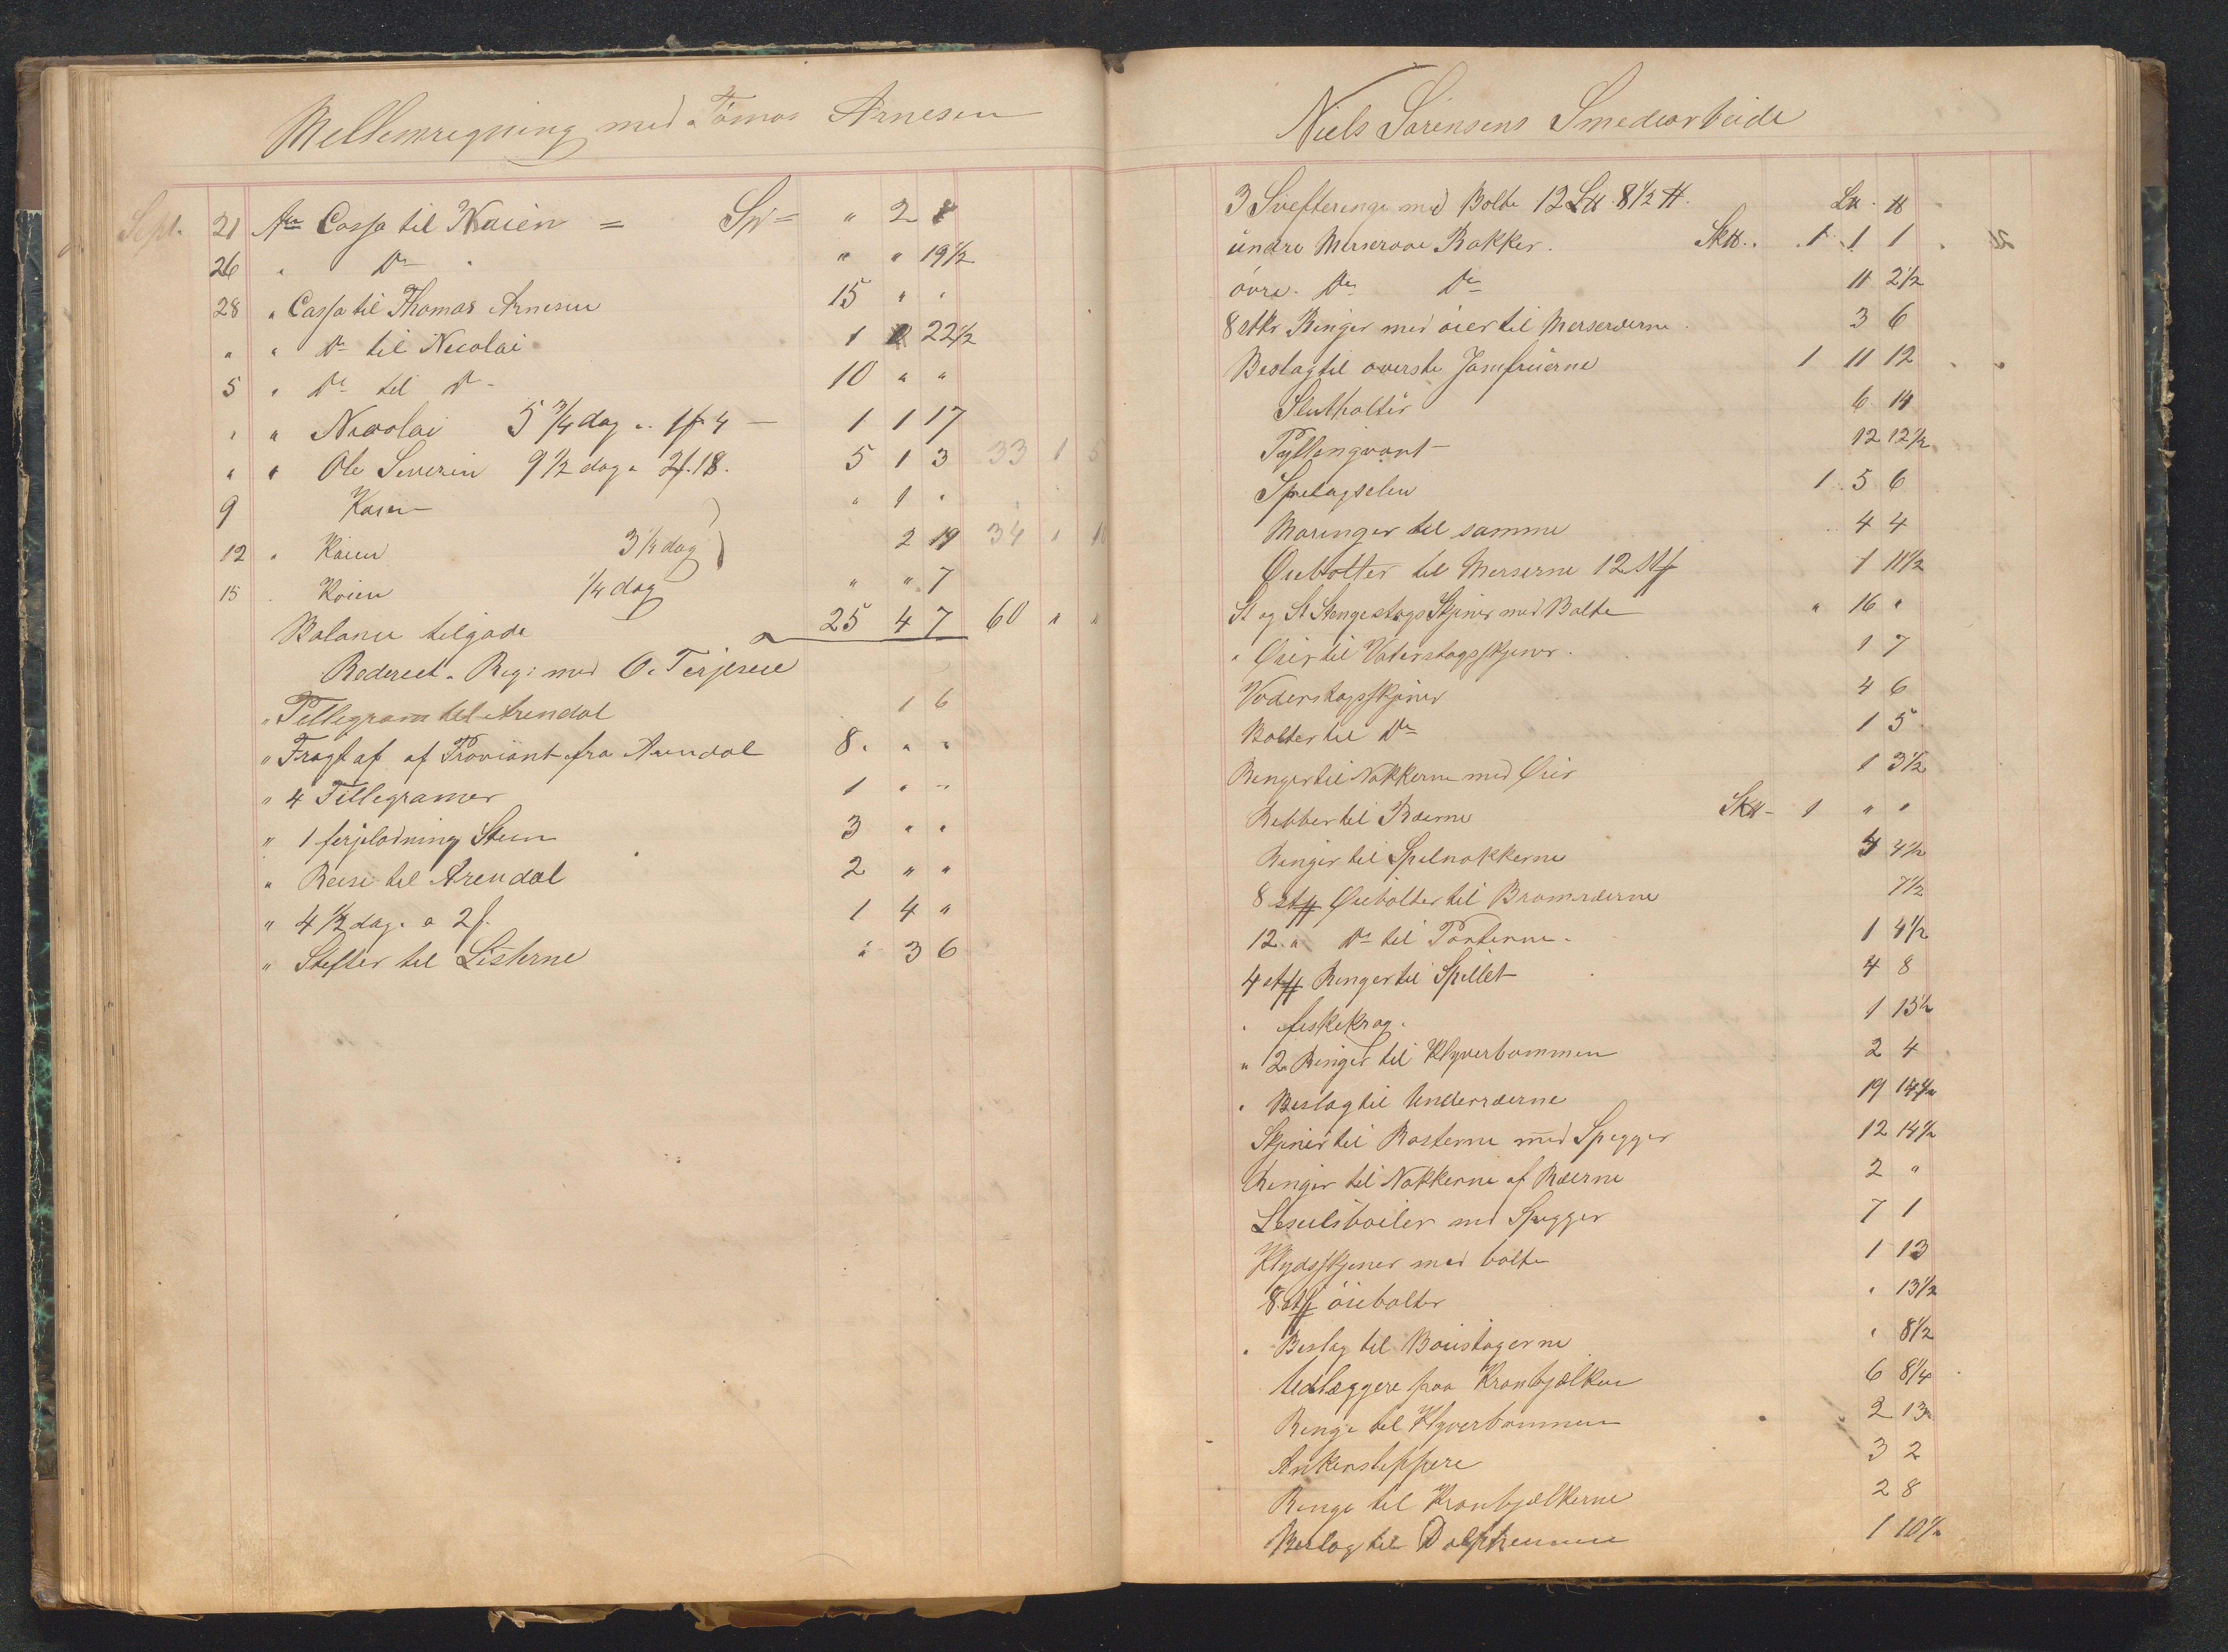 Mellemregning med Tômas Arnesen
Sept. 21 An Cassa til Kaien = Sp = " 2 8
26 " Do " " " 19½
28 " Cassa til Thomas Arnesen 15 " "
" " Do til Nicolai 1 22½
5 " Do til Do - 10 " "
" " Nicolai 5¾ dag a 1f 4 — 1 1 17
" " Ole Severin 9½ dag a 2f. 18. 5 1 3 33 1 5
9 Kaien — " 1 "
12 " Kaien 3¼ dag 2 19 34 "
15 . Kaien ¼ dag " " 7
Balance tilgode 25 4 7 60 " "
Rederiet " Reg: med O. Terjesen
" Tellegram til Arendal 1 6
" Fragt af af Proviant fra Arendal 8 " "
" 4 Tellegramer 1 " "
" 1 ferjeladning Steen 3 " "
" Reise til Arendal 2 " "
" 4½ dag. a 2f. 1 4 "
" Stefter til Listerne " 3 6
Niels Sörensens Smedearbeide
3 Svefteringe med Bolte 12 L℔ 8½ ℔. L℔ . ℔
undre Merseraae Rakker. Sk℔. . 1 1 1
övre. Do Do 11 2½
8 stkr Ringer med öier til Merseræerne 3 6
Beslag til överste Jomfruerne 1 11 12
Slutholter 6 14
Pyttingvant 12 12½
Spelagselen 1 5 6
Maringer til samme 4 4
Öiebolter til Merserne 12 Stf 1 11½
St og St Stengestags Skjiner med Bolte " 16 "
" Öier til Vaterstagsskjener. 1 7
Vaderstagsskjiner 4 6
Bolter til Do 1 5
Ringer til Nokkerne med Öier 1 3½
Bebber til Ræerne Sk℔ - 1 " "
Ringer til Spelnokkerne 4½
8 stk Öiebolter til Bramræerne 7½
12. " Do til Porterne. 1 4½
4 stk Ringer til Spillet 4 8
" fiskekrag. 1 15½
" 2 Ringer til Klyverbommen 2 4
" Beslag til Underræerne 19 14½
Skjener til Rösterne med Spegger 12 14½
Ringer til Nokkerne af Ræerne 2 "
Leseilsböiler med Spegger 7 1
Klydsskjener med bolte 1 13
8. stk öiebolter " 13½
" Beslag til Böiestagerne " 8½
Udlæggere paa Kranbjælken 6 8¼
Ringe til Klyverbommen 2 13
Ankersteppere 3 2
Ringe til Kranbjelkerne 2 8
Beslag til 1 10½